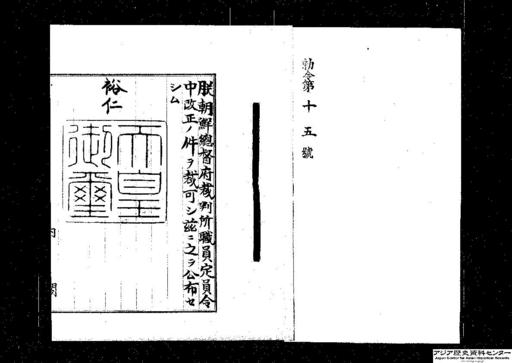 勅令第十五號
朕朝鮮總督府裁判所職員定員令
中改正ノ件ヲ裁可シ茲ニ之ヲ公布セ
シム
裕仁
天皇
御璽
アジア歴史資料センター
Japan Center for Asian Historical Records